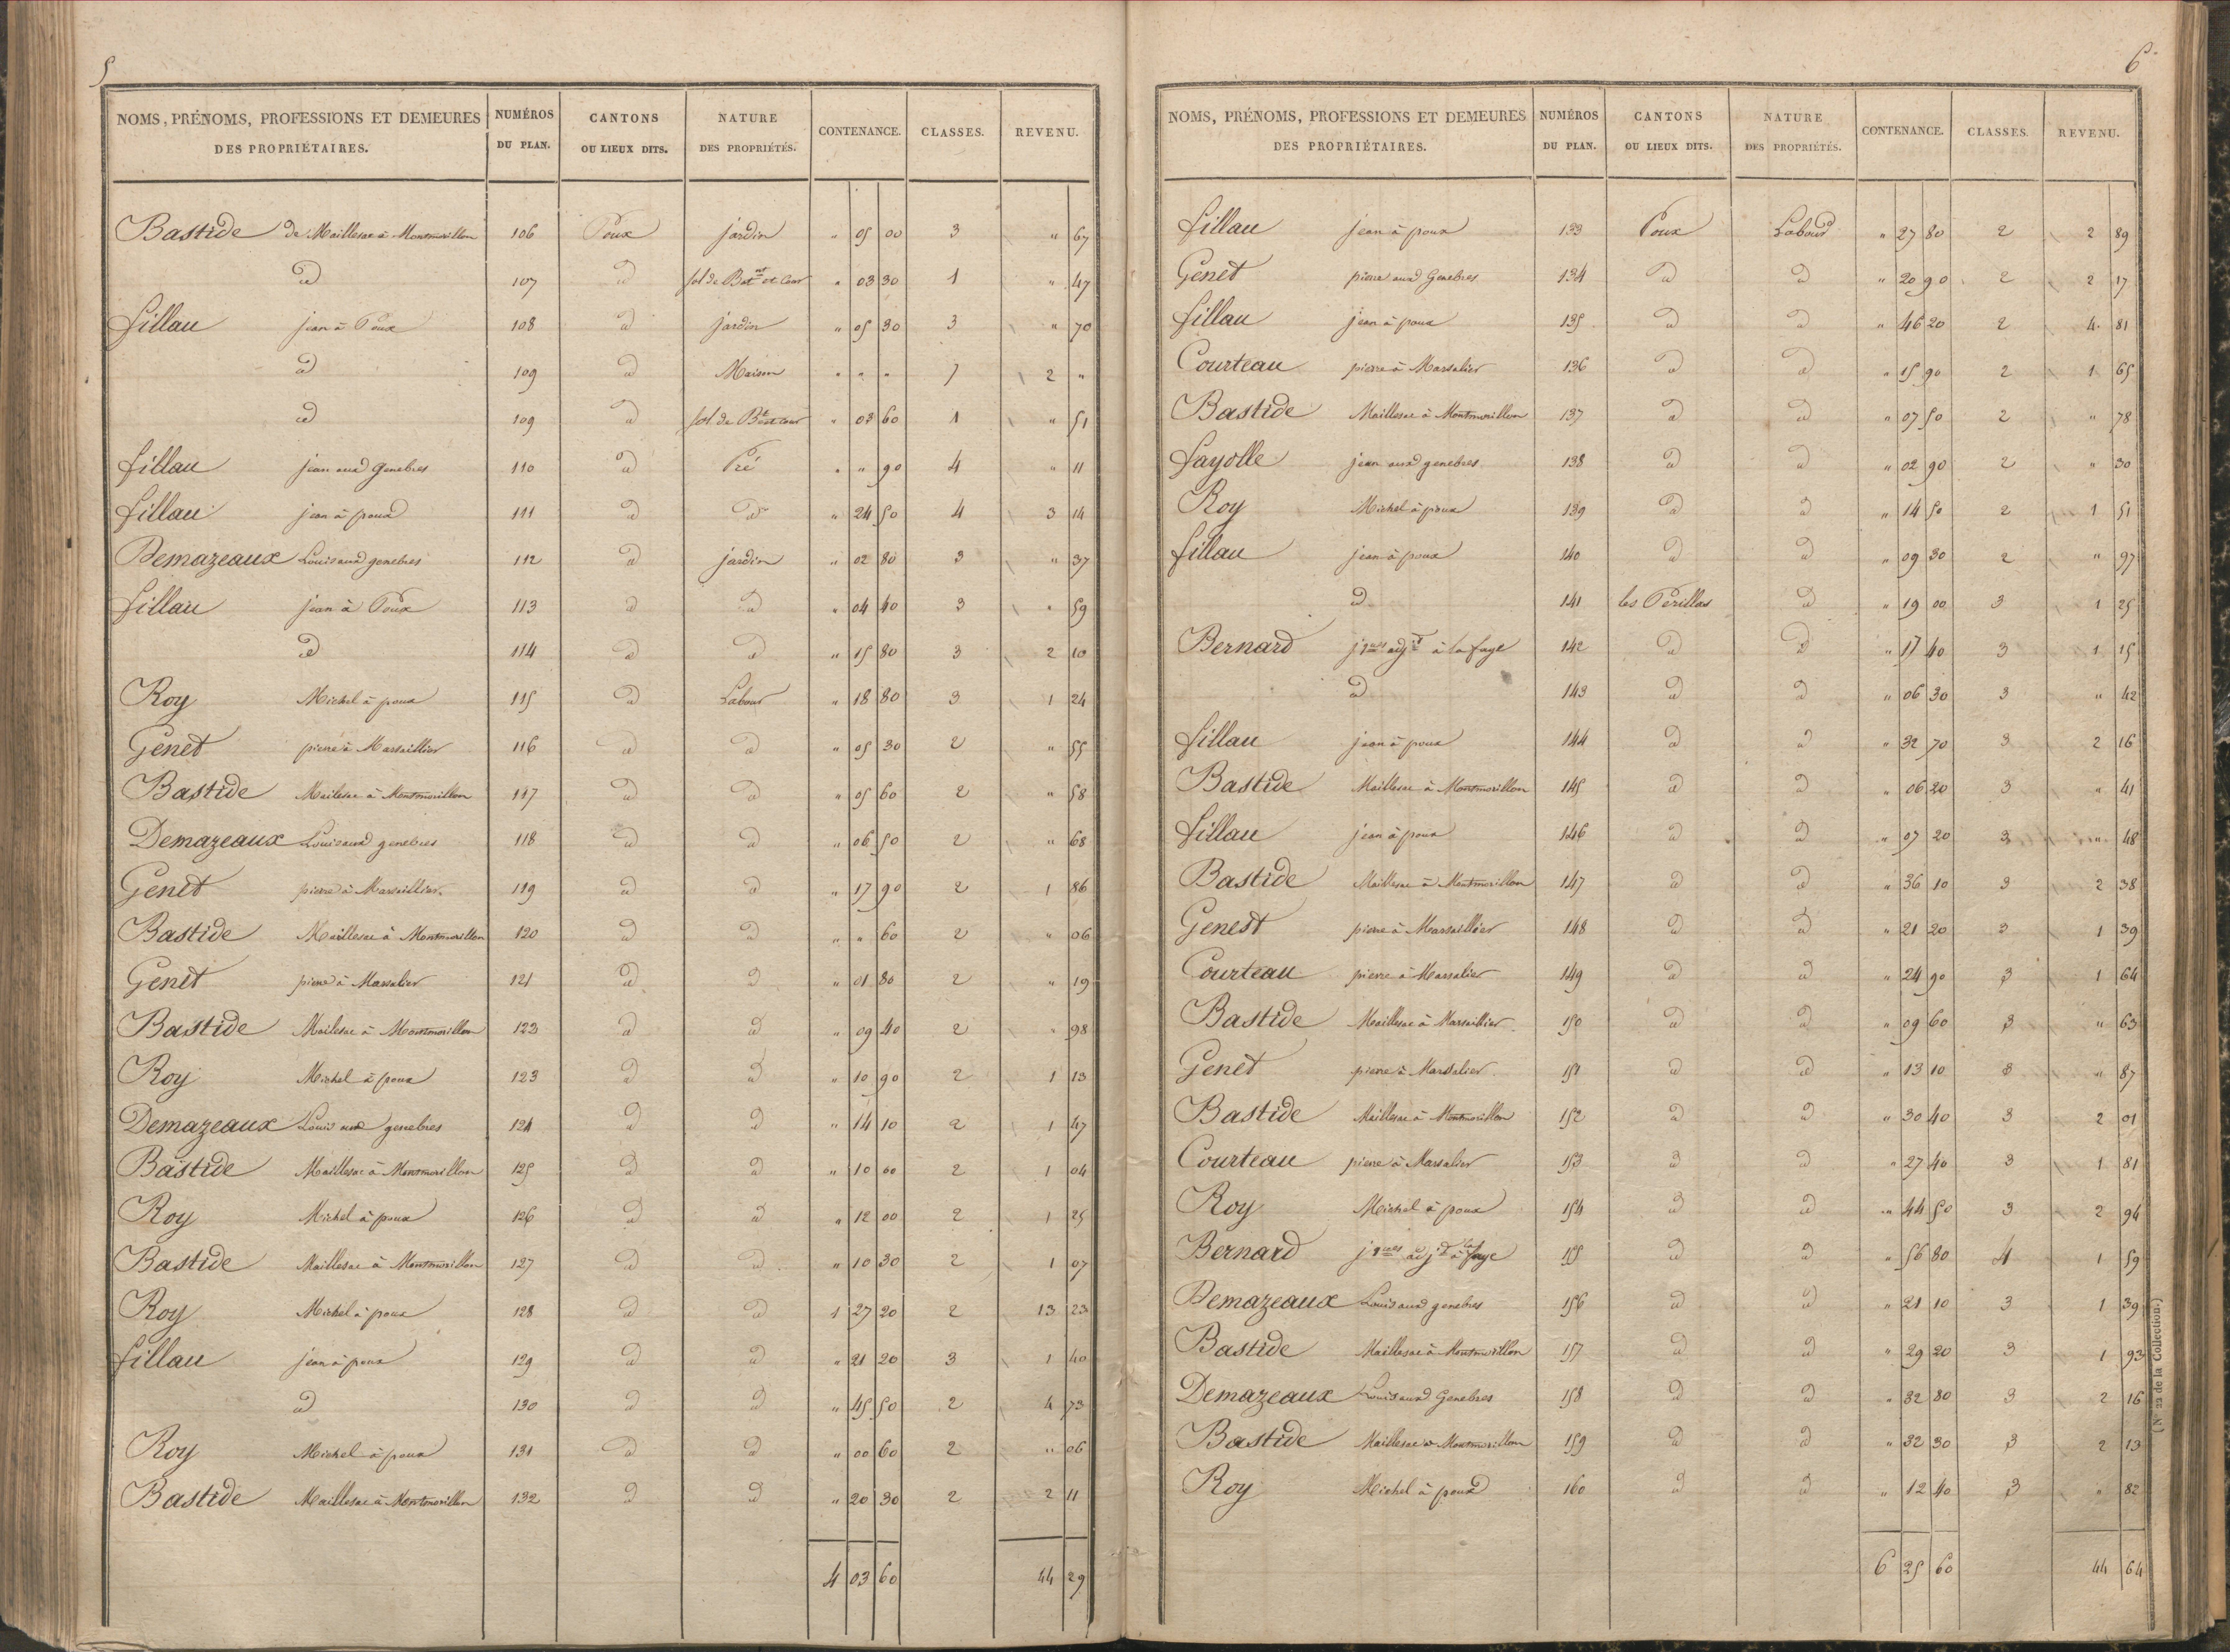 5
NOMS, PRÉNOMS, PROFESSIONS ET DEMEURES DES PROPRIÉTAIRES. NUMÉROS DU PLAN. CANTONS OU LIEUX DITS. NATURE DES PROPRIÉTÉS. CONTENANCE. CLASSES. REVENU.
Bastide de Maillesac à Montmorillon 106 Poux jardin " 05 00 3 " 67
d 107 d sol de Batnt et Cour " 03 30 1 " 47
fillau jean à Poux 108 d jardin " 05 30 3 " 70
d 109 d Maison " " " 7 2 "
d 109 d sol de Bt et cour " 03 60 1 " 51
fillau jean aux Genebres 110 d Pré " " 90 4 " 11
fillau jean à poux 111 d d " 24 50 4 3 14
Demazeaux Louis aux genebres 112 d jardin " 02 80 3 " 37
fillau jean à Poux 113 d d " 04 40 3 " 59
d 114 d d " 15 80 3 2 10
Roy Michel à poux 115 d Labour " 18 80 3 1 24
Genet pierre à Marsaillier 116 d d " 05 30 2 " 55
Bastide Mailesac à Montmorillon 117 d d " 05 60 2 " 58
Demazeaux Louis aux genebres 118 d d " 06 50 2 " 68
Genet pierre à Marsaillier 119 d d " 17 90 2 1 86
Bastide Maillesac à Montmorillon 120 d d " " 60 2 " 06
Genet pierre à Marsalier 121 d d " 01 80 2 " 19
Bastide Mailesac à Montmorillon 123 d d " 09 40 2 " 98
Roy Michel à poux 123 d d " 10 90 2 1 13
Demazeaux Louis aux genebres 124 d d " 14 10 2 1 47
Bastide Maillesac à Montmorillon 125 d d " 10 00 2 1 04
Roy Michel à poux 126 d d " 12 00 2 1 25
Bastide Maillesac à Montmorillon 127 d d " 10 30 2 1 07
Roy Michel à poux 128 d d 1 27 20 2 13 23
fillau jean à poux 129 d d " 21 20 3 1 40
d 130 d d " 45 50 2 4 73
Roy Michel à poux 131 d d " 00 60 2 " 06
Bastide Maillesac à Montmorillon 132 d d " 20 30 2 2 11
4 03 60 44 29
6
NOMS, PRÉNOMS, PROFESSIONS ET DEMEURES DES PROPRIÉTAIRES. NUMÉROS DU PLAN. CANTONS OU LIEUX DITS. NATURE DES PROPRIÉTÉS. CONTENANCE. CLASSES. REVENU.
fillau jean à poux 133 Poux Labour " 27 80 2 2 89
Genet pierre aux Genebres 134 d d " 20 90 2 2 17
fillau jean à poux 135 d d " 46 20 2 4 81
Courteau pierre à Marsalier 136 d d " 15 90 2 1 65
Bastide Maillesac à Montmorillon 137 d d " 07 50 2 " 78
fayolle jean aux genebres 138 d d " 02 90 2 " 30
Roy Michel à poux 139 d d " 14 50 2 1 51
fillau jean à poux 140 d d " 09 30 2 " 97
d 141 les Périllas d " 19 00 3 1 25
Bernard jques adjt à la faye 142 d d " 17 40 3 1 15
d 143 d d " 06 30 3 " 42
fillau jean à poux 144 d d " 32 70 3 2 16
Bastide Maillesac à Montmorillon 145 d d " 06 20 3 " 41
fillau jean à poux 146 d d " 07 20 3 " 48
Bastide Maillesac à Montmorillon 147 d d " 36 10 3 2 38
Genest pierre à Marsaillier 148 d d " 21 20 3 1 39
Courteau pierre à Marsalier 149 d d " 24 90 3 1 64
Bastide Maillesac à Marsaillier 150 d d " 09 60 3 " 63
Genet pierre à Marsalier 151 d d " 13 10 3 " 87
Bastide Maillesac à Montmorillon 152 d d " 30 40 3 2 01
Courteau pierre à Marsalier 153 d d " 27 40 3 1 81
Roy Michel à poux 154 d d " 44 50 3 2 94
Bernard jques adjt à la faye 155 d d " 56 80 4 1 59
Demazeaux Louis aux genebres 156 d d " 21 10 3 1 39
Bastide Maillesac à Montmorillon 157 d d " 29 20 3 1 93
Demazeaux Louis aux Genebres 158 d d " 32 80 3 2 16
Bastide Maillesac à Montmorillon 159 d d " 32 30 3 2 13
Roy Michel à poux 160 d d " 12 40 3 " 82
6 25 60 44 64
(N° 22 de la Collection.)